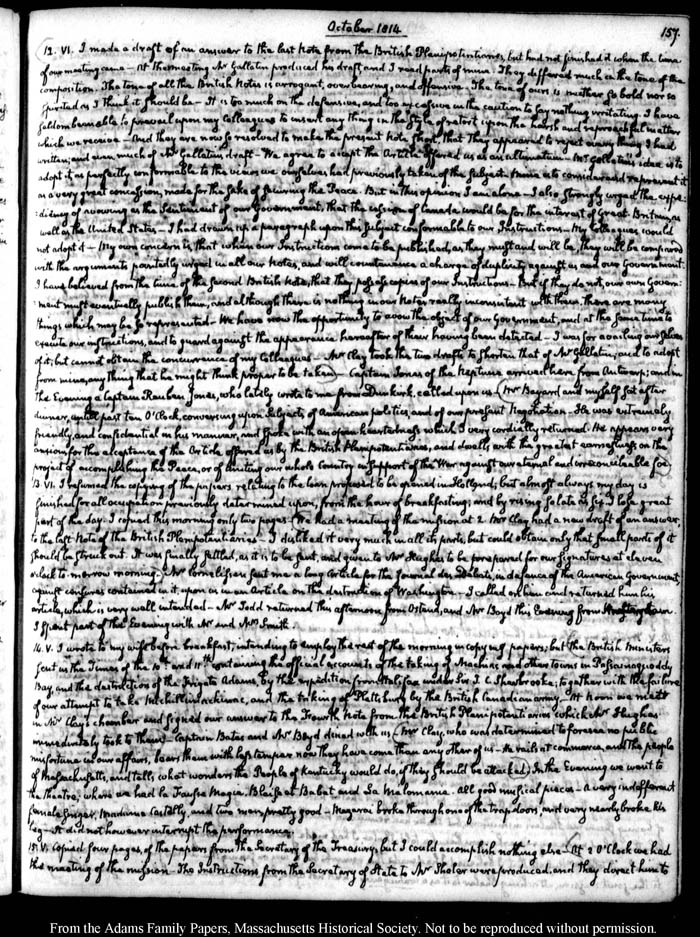 October 1814
157.
12. VI. I made a draft of an answer to the last Note from the British Plenipotentiaries, but had not finished it when the time
of our meeting came — At the meeting Mr Gallatin produced his draft and I read parts of mine. They differed much in the tone of the
composition. The tone of all the British Notes is arrogant, overbearing, and offensive. The tone of ours is neither so bold nor so
spirited as I think it should be — It is too much on the defensive, and too excessive in the caution to say nothing irritating. I have
seldom been able to prevail upon my Colleagues to insert any thing in the style of retort upon the harsh and reproachful matter
which we receive — And they are now so resolved to make the present Note short, that they appeared to reject every thing I had
written, and even much of Mr Gallatin's draft — We agree to accept the Article offered us as an ultimatum — Mr Gallatin's idea is to
adopt it as perfectly conformable to the views we ourselves had previously taken of the subject. Mine is to consider and represent it
as a very great concession, made for the sake of securing the Peace. But in this opinion I am alone — I also strongly urged the expe-
diency of avowing as the sentiment of our Government, that the cession of Canada would be for the interest of Great Britain, as
well as the United States — I had drawn up a paragraph upon this subject conformable to our Instructions — My Colleagues would
not adopt it — My own concern is, that when our Instructions come to be published, as they must and will be, they will be compared
with the arguments pointedly urged in all our Notes, and will countenance a charge of duplicity against us and our Government.
I have believed from the time of the second British Note, that they possess copies of our Instructions — But if they do not, our own Govern-
ment must eventually publish them, and although there is nothing in our Notes really inconsistent with them, there are many
things which may be so represented — We have now the opportunity to avow the object of our Government, and at the same time to
execute our instructions, and to guard against the appearance hereafter of their having been detected — I was for availing ourselves
of it, but cannot obtain the concurrence of my colleagues — Mr Clay took the two drafts to shorten that of Mr Gallatin, and to adopt
from mine, any thing that he might think proper to be taken — Captain Jones of the Neptune arrived here from Antwerp; and in
the Evening a Captain Reuben Jones, who lately wrote to me from Dunkirk, called upon us. Mr Bayard and myself sat after
dinner, untill past ten O'Clock, conversing upon subjects of American politics, and of our present Negotiation — He was extremely
friendly, and confidential in his manner, and spoke with an open heartedness which I very cordially returned. He appears very
anxious for the acceptance of the Article offered us by the British Plenipotentiaries, and dwells with the greatest earnestness on the
project of accomplishing the Peace, or of uniting our whole Country in support of the War against our eternal and irreconcileable foe.
13. VI. I resumed the copying of the papers relating to the loan proposed to be opened in Holland; but almost always my day is
finished for all occupation previously determined upon, from the hour of breakfasting; and by rising so late as six, I lose great
part of the day. I copied this morning only two pages — We had a meeting of the mission at 2. Mr Clay had a new draft of an answer,
to the last Note of the British Plenipotentiaries — I disliked it very much in all its parts, but could obtain only that small parts of it
should be struck out. It was finally settled, as it is to be sent, and given to Mr Hughes to be prepared for our signatures at eleven
o'clock to-morrow morning. Mr Cornelissen sent me a long Article for the Journal des Debats, in defence of the American Government,
against censures contained in it, upon us in an Article on the destruction of Washington — I called on him and returned him his
article, which is very well intended — Mr Todd returned this afternoon from Ostend, and Mr Boyd this Evening from
I spent part of the Evening with Mr and Mrs Smith.
14. V. I wrote to my wife before breakfast; intending to employ the rest of the morning in copying papers, but the British Ministers
sent us the Times of the 10th and 11th containing the official accounts of the taking of Machias and other towns in Passamaquoddy
Bay, and the destruction of the Frigate Adams, by the expedition from Halifax under Sir J. C. Sherbrooke; together with the failure
of our attempt to take Michillimackinac, and the taking of Plattsburg by the British Canadian army. At noon we met
in Mr Clay's chamber and signed our answer to the Fourth Note from the British Plenipotentiaries which Mr Hughes
immediately took to them — Captain Bates and Mr Boyd dined with us. Mr Clay, who was determined to foresee no public
misfortune in our affairs, bears them with less temper now they have come than any other of us — He rails at commerce, and the people
of Massachusetts, and tells, what wonders the People of Kentucky would do, if they should be attacked. In the Evening we went to
the Theatre, where we had La Fausse Magie. Blaise et Babet and La Melomanie. all good musical pieces — A very indifferent
female singer, Madame Castelly, and two men, pretty good — Mazarai broke through one of the trap doors, and very nearly broke his
leg — It did not however interrupt the performance.
15. VI. Copied four pages, of the papers from the Secretary of the Treasury, but I could accomplish nothing else — At 2 O'Clock we had
the meeting of the mission — The Instructions from the Secretary of State to Mr Shaler were produced, and they direct him to
From the Adams Family Papers, Massachusetts Historical Society. Not to be reproduced without permission.